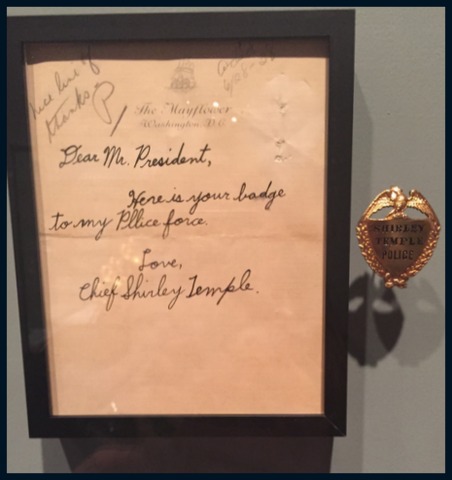 nice line of
thanks
The Mayflower
Washington, D.C.
Dear Mr. President,
Here is your badge
to my Pllice force.
Love,
Chief Shirley Temple.
SHIRLEY
TEMPLE
POLICE